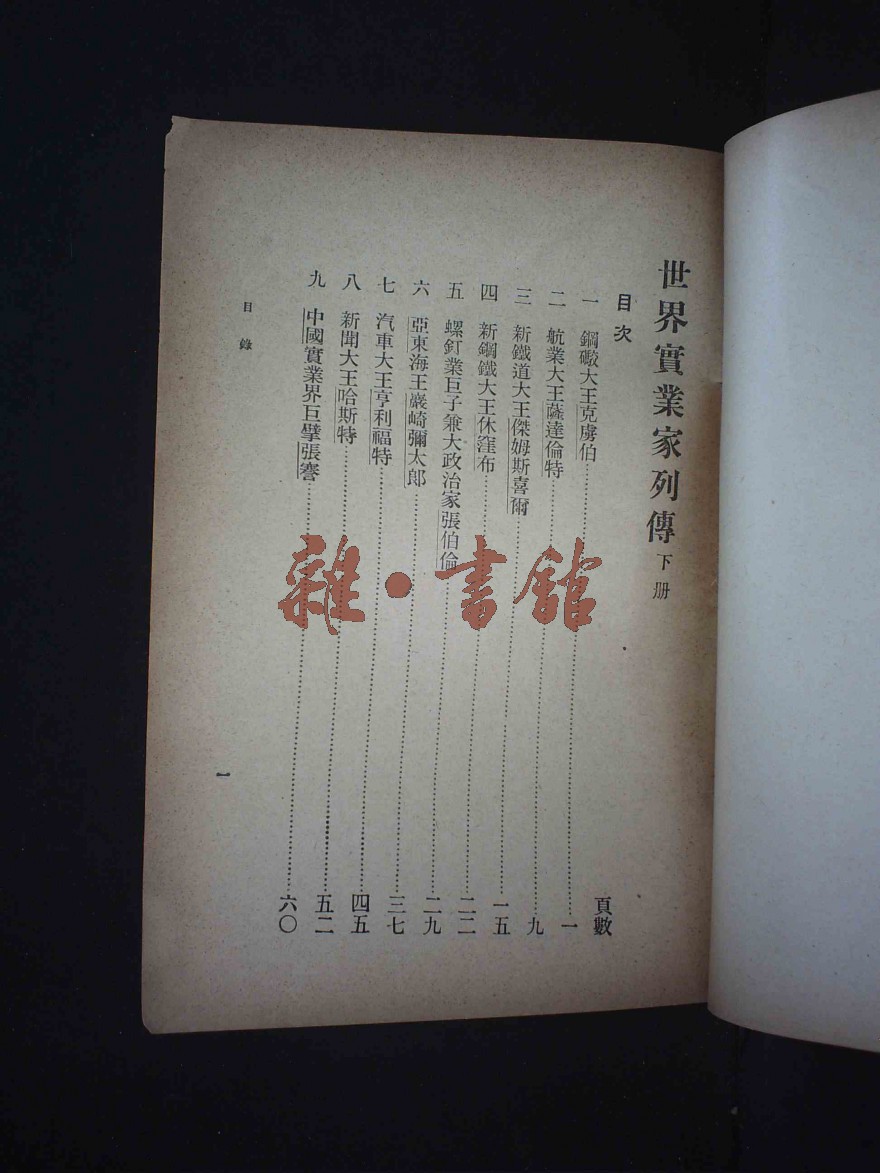 世界實業家列傳 下册
目次
頁數
一 鋼礮大王克虜伯……一
二 航業大王薩達倫特……九
三 新鐵道大王傑姆斯喜爾……一五
四 新鋼鐵大王休窪布……二二
五 螺釘業巨子兼大政治家張伯倫……二九
六 亞東海王巖崎彌太郎……三七
七 汽車大王亨利福特……四五
八 新聞大王哈斯特……五二
九 中國實業界巨擘張謇……六〇
目錄
一
雜·書館